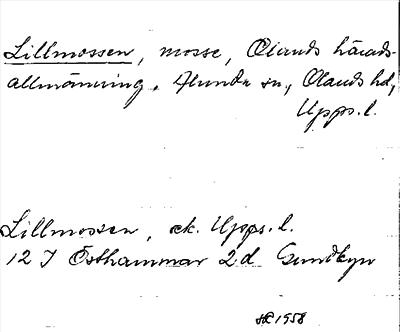 Lillmossen, mosse, Olands härads-
allmänning. Alunda sn, Olands hd,
Upps. l.
Lillmossen, ek. Upps. l.
12 I Östhammar 2 d Sundbyn
1958